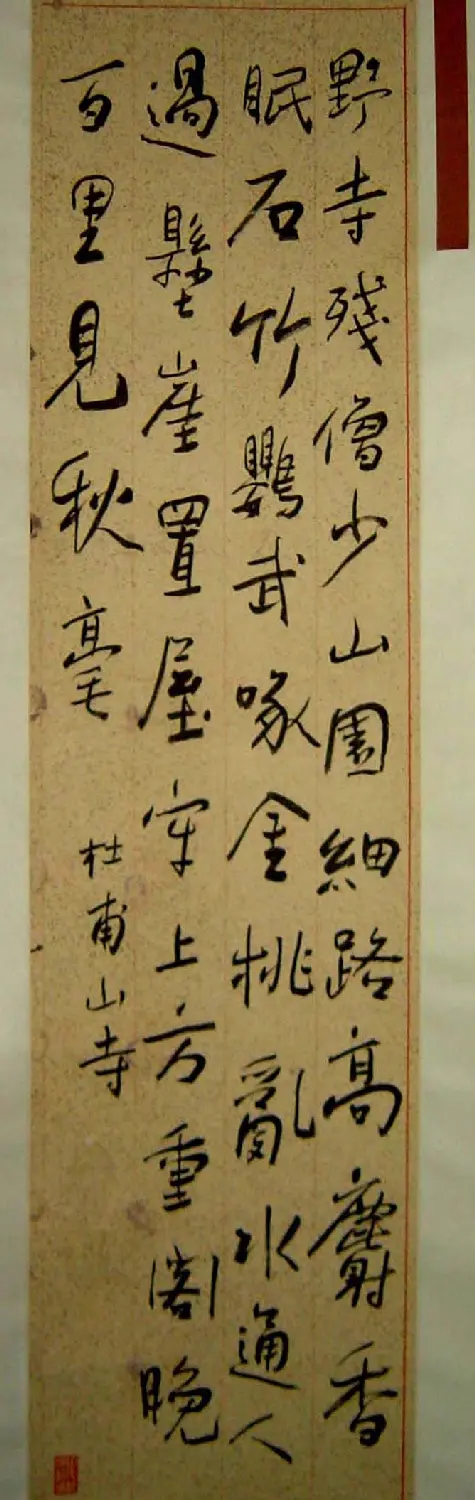 野寺殘僧少山園細路高麝香
眠石竹鸚武啄金桃亂水通人
過懸崖置屋牢上方重閣晚
百里見秋毫
杜甫山寺